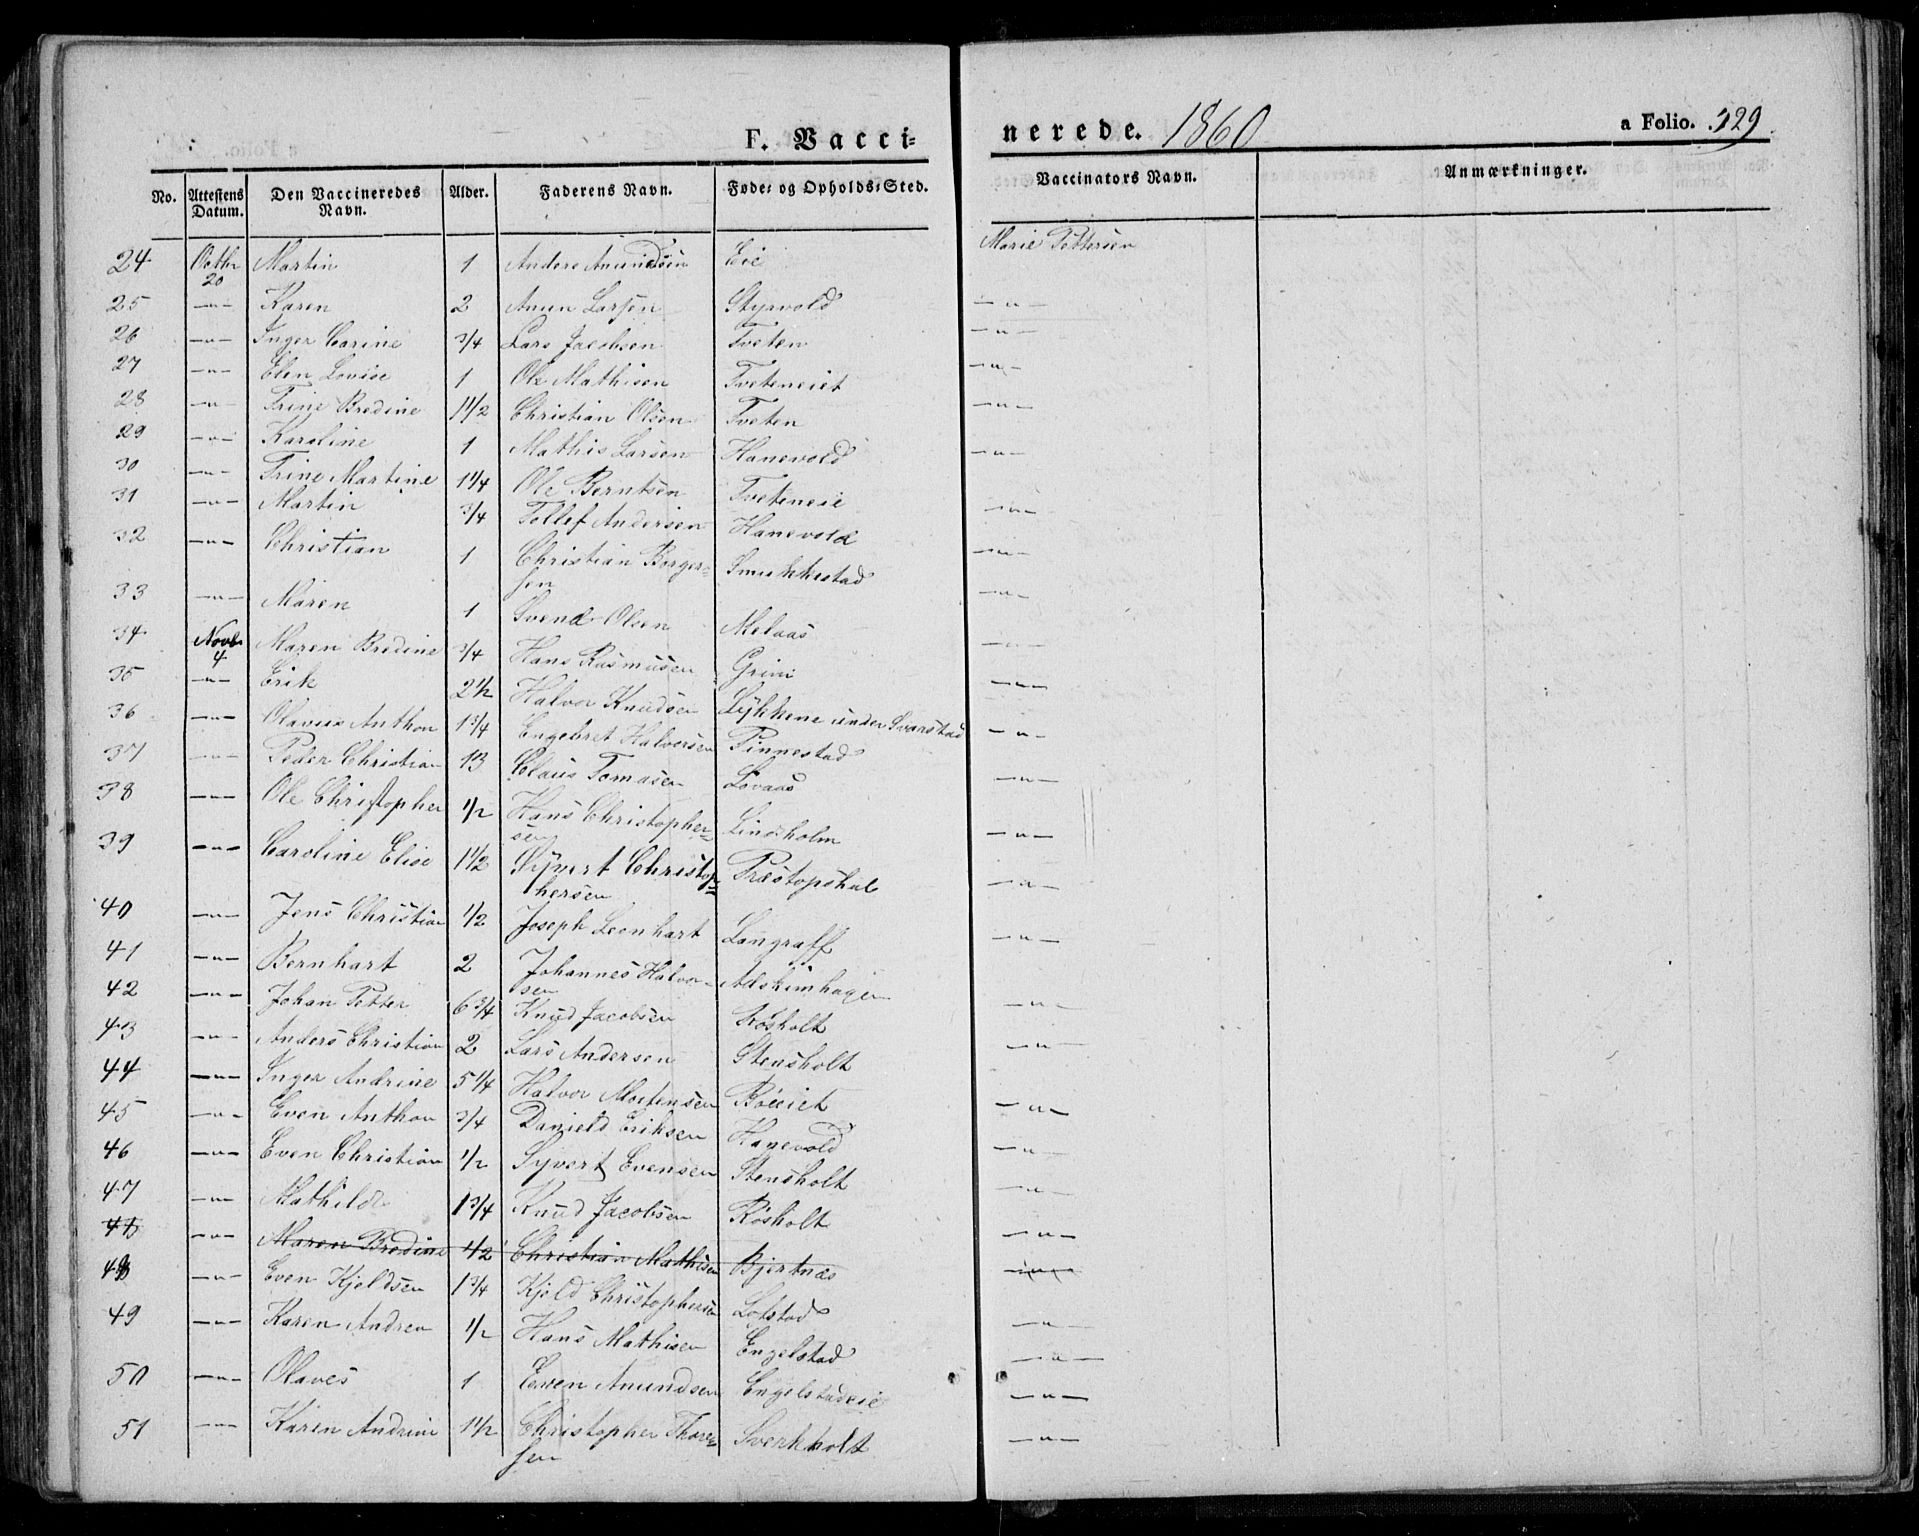 F. Vacci-
nerede. 1860 a Folio. 329.
No. Attestens Datum. Den Vaccineredes Navn. Alder. Faderens Navn. Føde- og Opholds-Sted. Vaccinators Navn. Anmærkninger.
24 Octbr 20 Martin 1 Anders Amundsen Eie Marie Pettersen
25 -"- Karen 2 Amun Larsen Styrvold -"-
26 -"- Inger Carine 3/4 Lars Jacobsen Tveten -"-
27 -"- Elen Lovise 1 Ole Mathisen Tveteneiet -"-
28 -"- Trine Bredine 1 1/2 Christian Olsen Tveten -"-
29 -"- Karoline 1 Mathis Larsen Hanevold -"-
30 -"- Trine Martine 1 1/4 Ole Berntsen Tveteneie
31 -"- Martin 3/4 Tollef Andersen Hanevold -"-
32 -"- Christian 1 Christian Borger=
sen Smukkestad -"-
33 -"- Maren 1 Svend Olsen Melaas -"-
34 Novbr 4 Maren Bredine 3/4 Hans Rasmusen Grini -"-
35 -"- Erik 2 1/2 Halvor Knudsen Lykkene under Svarstad -"-
36 -"- Olavus Anthon 1 3/4 Engebret Halvorsen Finnestad -"-
37 -"- Peder Christian 13 Claus Tomasen Lovaas -"-
38 -"- Ole Christopher 1/2 Hans Christopher=
sen Lindholm -"-
39 -"- Caroline Elise 1 1/2 Syvert Christop=
hersen -"-
40 -"- Jens Christian 1/2 Joseph Leenhart Langraff -"-
41 -"- Bernhart 2 Johannes Halvor-
sen
42 -"- Johan Petter 6 3/4 Knud Jacobsen Røsholt -"-
43 -"- Anders Christian 2 Lars Andersen Stensholt -"-
44 -"- Inger Andrine 5 1/4 Halvor Mortensen Bøeiet -"-
45 -"- Even Anthon 3/4 Danield Eriksen Hanevold -"-
46 -"- Even Christian 1/2 Syvert Evensen Stensholt -"-
47 -"- Mathilde 1 3/4 Knud Jacobsen Røsholt -"-
48 -"- Maren Bredine 1/2 Christian Mathisen Bjertnæs -"-
48 -"- Even Kjeldsen 1 3/4 Kjeld Christophersen Lofstad -"-
49 -"- Karen Andrea 1/2 Hans Mathisen Engelstad -"-
50 -"- Olaves 1 Even Amundsen Engelstadeie -"-
51 -"- Karen Andrine 1 1/2 Christopher Thore=
sen Sverkholt -"-